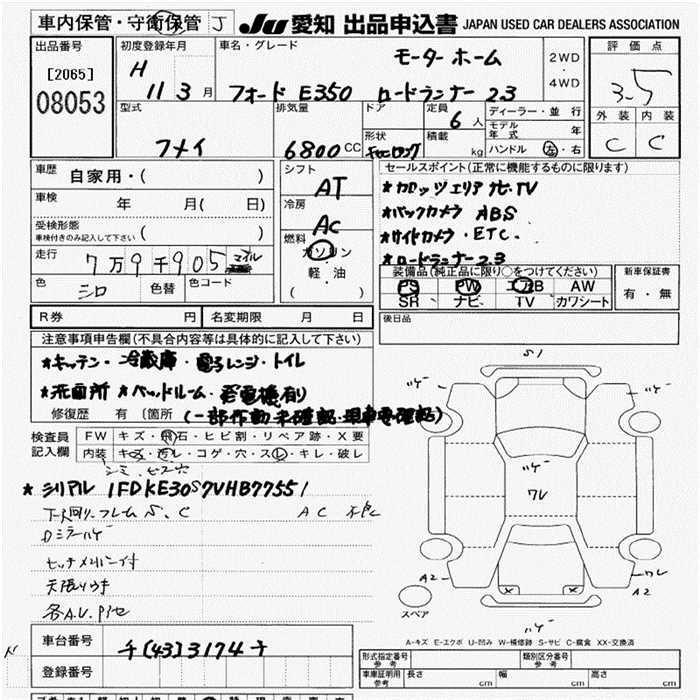 車内保管・守衛保管 J
JU 愛知 出品申込書 JAPAN USED CAR DEALERS ASSOCIATION
出品番号
[2065]
08053
初度登録年月
H 11 3 月
車名・グレード
モーターホーム
フォード E350 ロードランナー 23
2WD
・
4WD
評価点
3.5
外装 内装
C C
型式
フメイ
排気量
6800 CC
ドア
形状
キャビロング
定員
6 人
積載
kg
ディーラー・並行
モデル年式 年
ハンドル 左・右
車歴
自家用・( )
車検
年 月( 日)
受検形態
車検付きのみ記入して下さい ( )
走行
7万9千905 マイル
色
シロ
色替
色コード
シフト
AT
冷房
AC
燃料
ガソリン
軽・油
( )
セールスポイント(正常に機能するものに限ります)
★カロッツェリア ナビ・TV
★バックカメラ ABS
★サイドカメラ・ETC.
★ロードランナー23
装備品(純正品に限り○をつけてください)
PS PW エアB AW
SR ナビ TV カワシート
新車保証書
有・無
R券 円
名変期限 月 日
後日品
注意事項申告欄(不具合内容等は具体的に記入して下さい)
★キッチン・冷蔵庫・電子レンジ・トイレ
★洗面所 ★ベッドルーム・発電機有り
修復歴 有 〔箇所
(一部作動未確認・現車要確認)
検査員記入欄
FW キズ・飛石・ヒビ割・リペア跡・X要
内装 キズ・汚レ・コゲ・穴・スレ・キレ・破レ
★シリアル 1FDKE30S7VHB77551
下廻リフレーム S、C AC 不良
Dミラーハゲ
天張りゆき
S1
ハゲ
ハゲ
ハゲ
ワレ
A2
ワレ
A2
ハゲ
スペア
A-キズ E-エクボ U-凹み W-補修跡 S-サビ C-腐食 XX-交換済
車台番号
チ(43)3174チ
登録番号
形式指定番号
参考
類別区分番号
参考
車庫証明用
参考
長さ cm
幅 cm
高さ cm